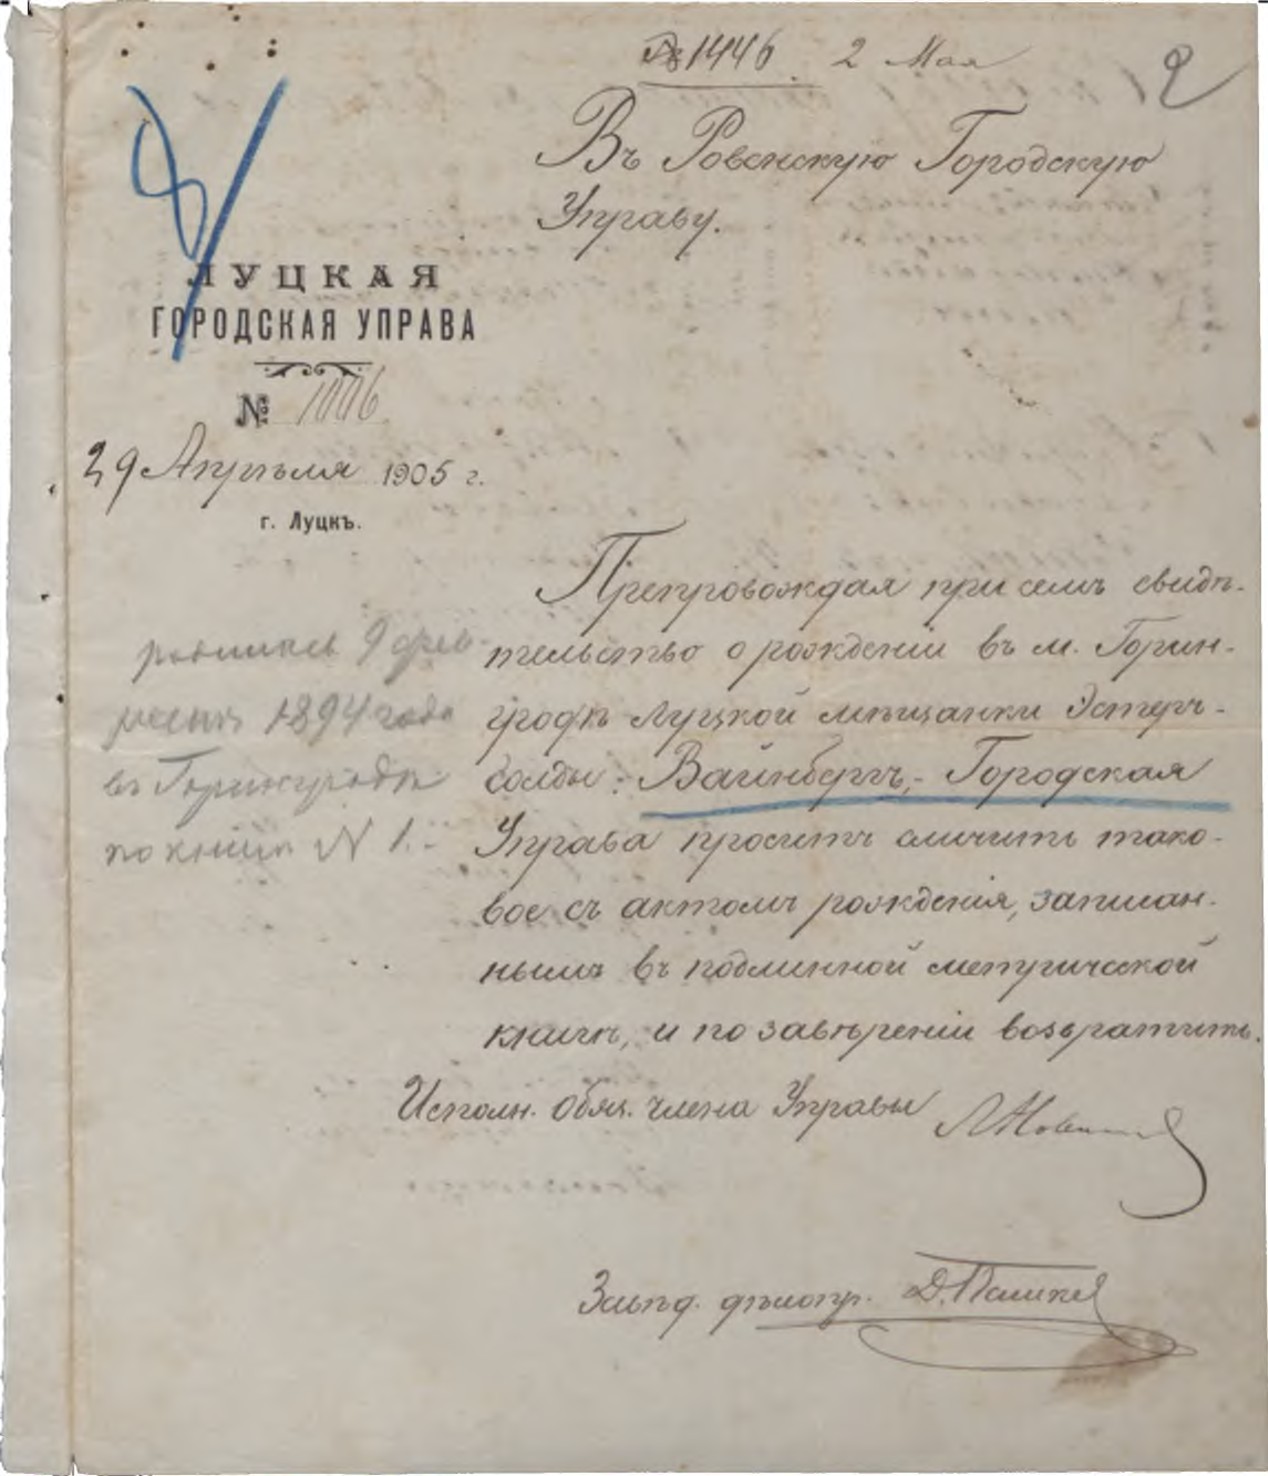 № 1446. 2 Мая
2
Въ Ровенскую Городскую
Управу.
ЛУЦКАЯ
ГОРОДСКАЯ УПРАВА
№ 1006
29 Апрѣля 1905 г.
г. Луцкъ.
Препровождая при семъ свидѣ-
тельство о рожденіи въ м. Горин-
гродѣ Луцкой мѣщанки Эстеръ-
Голды Вайнбергъ, Городская
Управа проситъ сличить тако-
вое съ актомъ рожденія, записан-
нымъ въ подлинной метрической
книгѣ, и по завѣреніи возвратить.
родилась 9 фев-
1894 года
въ Горинградѣ
по книгѣ N 1.-
Исполн. обяз. члена Управы
Завѣд. дѣлопр.